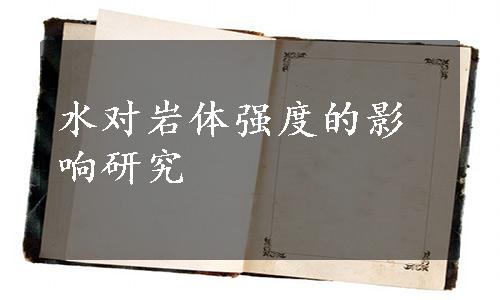 水对岩体强度的影
响研究